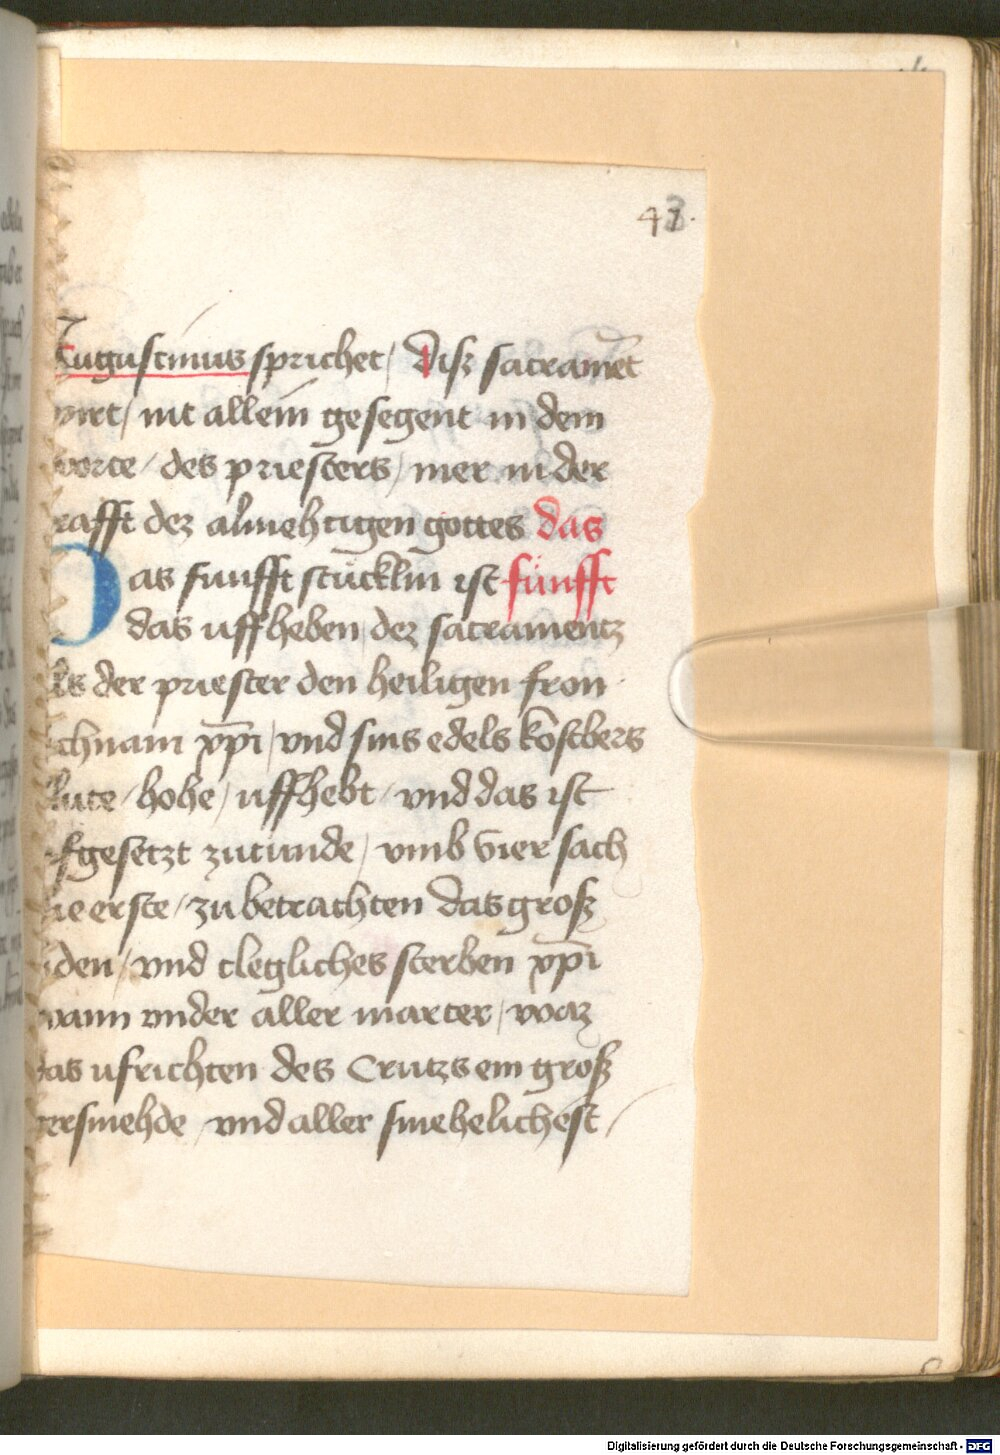 43.
Augustinus sprichet / disz sacrame̅t
wirt / nit allein gesegent in dem
worte / des priesters / mer in der
krafft dez almehtigen gottes das
Das funfft stücklin ist fünfft
das uffheben dez sacramentz
als der priester den heiligen fron
lichnam xp̅i / vnd sins edels kostbers
blute / hohe / uffhebt / vnd das ist
uffgesetzt zu tunde / vmb vier sach
die erste / zu betrachten das grosz
liden / vnd clegliches sterben xp̅i
wann vnder aller marter / waz
das ufrichten des Crutzs ein grosz
versmehde / vnd aller smehelichest /
Digitalisierung gefördert durch die Deutsche Forschungsgemeinschaft - DFG